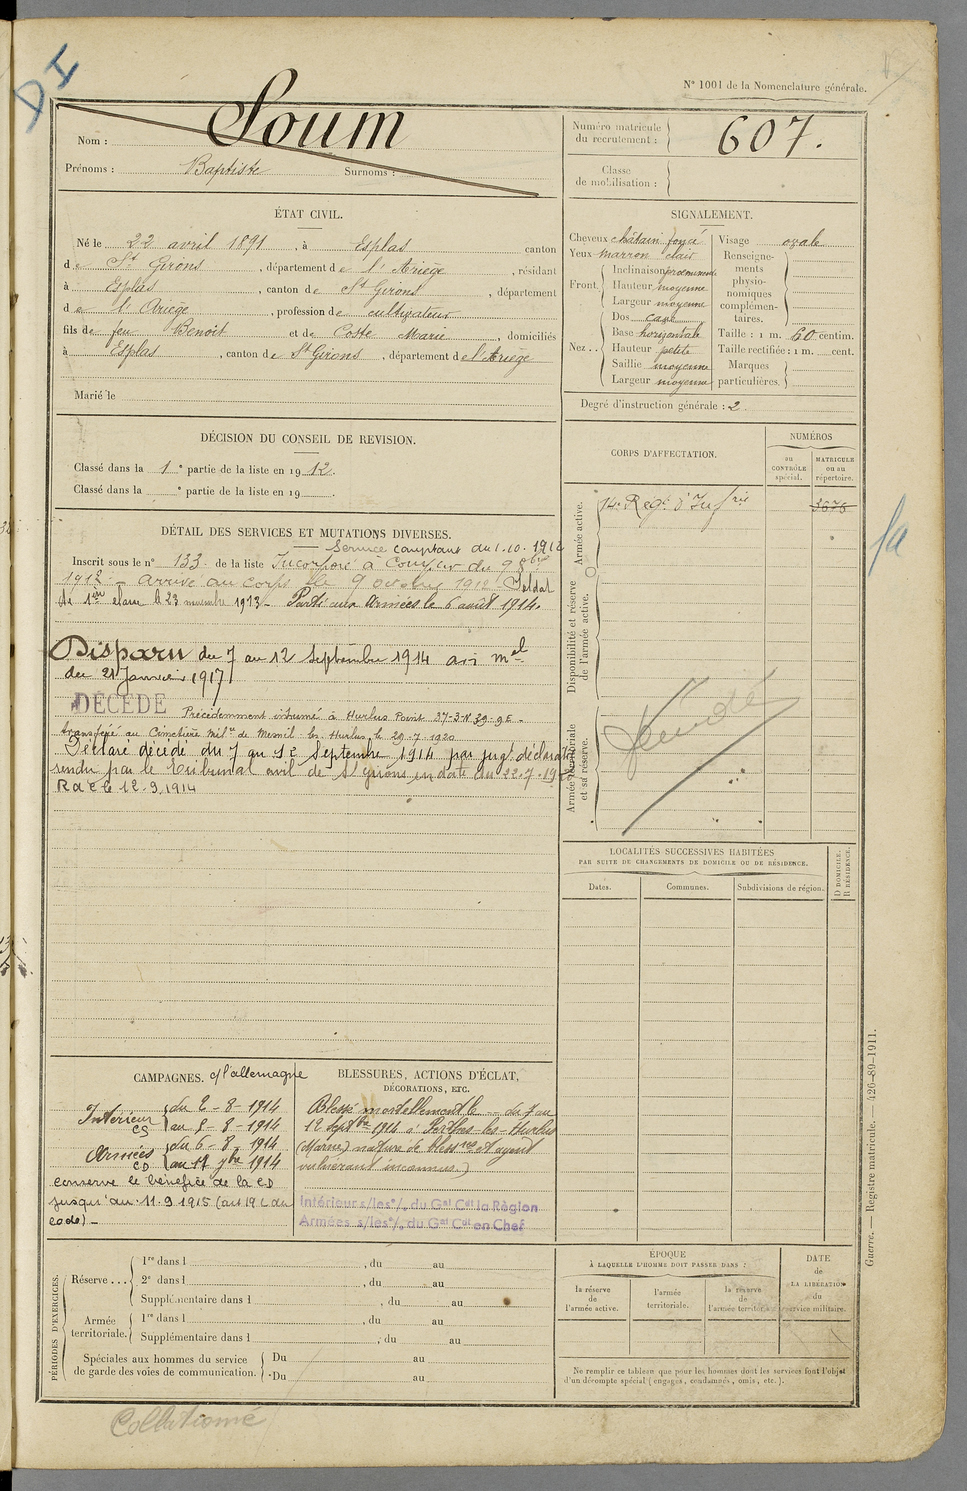 DI
N° 1001 de la Nomenclature générale.
Nom : Soum
Prénoms : Baptiste Surnoms :
Numéro matricule du recrutement : 607.
Classe de mobilisation :
ÉTAT CIVIL.
Né le 22 avril 1891, à Esplas canton
de St Girons, département de l'Ariège, résidant
à Esplas, canton de St Girons, département
de l'Ariège, profession de cultivateur
fils de feu Benoit et de Coste Marie domiciliés
à Esplas, canton de St Girons, département de l'Ariège
Marié le
SIGNALEMENT.
Cheveux châtain foncé
Yeux marron clair
Front. Inclinaison proéminente
Hauteur moyenne
Largeur moyenne
Nez .. Dos cave
Base horizontale
Hauteur petite
Saillie moyenne
Largeur moyenne
Visage ovale
Renseignements physionomiques complémentaires.
Taille : 1 m. 60 centim.
Taille rectifiée : 1 m. cent.
Marques particulières.
Degré d'instruction générale : 2.
DÉCISION DU CONSEIL DE REVISION.
Classé dans la 1e partie de la liste en 1912.
Classé dans la e partie de la liste en 19 .
CORPS D'AFFECTATION.
NUMÉROS
au CONTRÔLE spécial.
MATRICULE ou au répertoire.
Armée active.
14e Regt d'Infrie
3676
Disponibilité et réserve de l'armée active.
Armée territoriale et sa réserve.
DÉTAIL DES SERVICES ET MUTATIONS DIVERSES.
Service comptant du 1.10.1912
Inscrit sous le n° 133 de la liste Incorporé à Compter du 9 8bre
1912 - arrivé au corps le 9 octobre 1912. Soldat
de 1ère classe le 23 novembre 1913 - Parti aux Armées le 6 août 1914.
Disparu du 7 au 12 Septembre 1914 avis mel
du 21 Janvier 1917
DÉCÉDÉ Précédemment inhumé à Hurlus Point 37-3-N 39-9E -
transféré au Cimetière Milre de Mesnil les Hurlus le 29-7-1920
Déclaré décédé du 7 au 12 Septembre 1914 par jugt déclaratif
rendu par le Tribunal civil de St Girons en date du 22-7-19
R d c le 12-9-1914
LOCALITÉS SUCCESSIVES HABITÉES
PAR SUITE DE CHANGEMENTS DE DOMICILE OU DE RÉSIDENCE.
Dates. Communes. Subdivisions de région. D DOMICILE. R RÉSIDENCE.
CAMPAGNES. c/ l'allemagne
Intérieur CS du 2-8-1914
au 5-8-1914
Armées CD du 6-8-1914
au 12 7bre 1914
conserve le bénéfice de la CD
jusqu'au 11.9.1915 (art 19 L du
code) -
BLESSURES, ACTIONS D'ÉCLAT,
DÉCORATIONS, ETC.
Blessé mortellement le -- du 7 au
12 Septbre 1914 à Perthes-les-Hurlus
(Marne) nature de blessres et agent
vulnérant inconnus.)
Intérieur s/les o/. du Gal Cdt la Région
Armées s/les o/. du Gal Cdt en Chef
PÉRIODES D'EXERCICES.
Réserve ... 1re dans l , du au
2e dans l , du au
Supplémentaire dans l , du au
Armée territoriale. 1re dans l , du au
Supplémentaire dans l , du au
Spéciales aux hommes du service de garde des voies de communication. Du au
Du au
ÉPOQUE
À LAQUELLE L'HOMME DOIT PASSER DANS :
la réserve de l'armée active.
l'armée territoriale.
la réserve de l'armée territoriale.
DATE de LA LIBÉRATION du service militaire.
Ne remplir ce tableau que pour les hommes dont les services font l'objet
d'un décompte spécial (engagés, condamnés, omis, etc.).
Guerre. — Registre matricule. — 426-89-1911.
Collationné